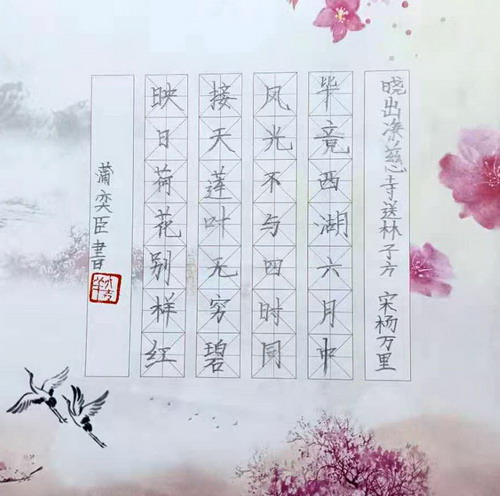 晓出净慈寺送林子方 宋杨万里
毕竟西湖六月中
风光不与四时同
接天莲叶无穷碧
映日荷花别样红
蒲奕臣书